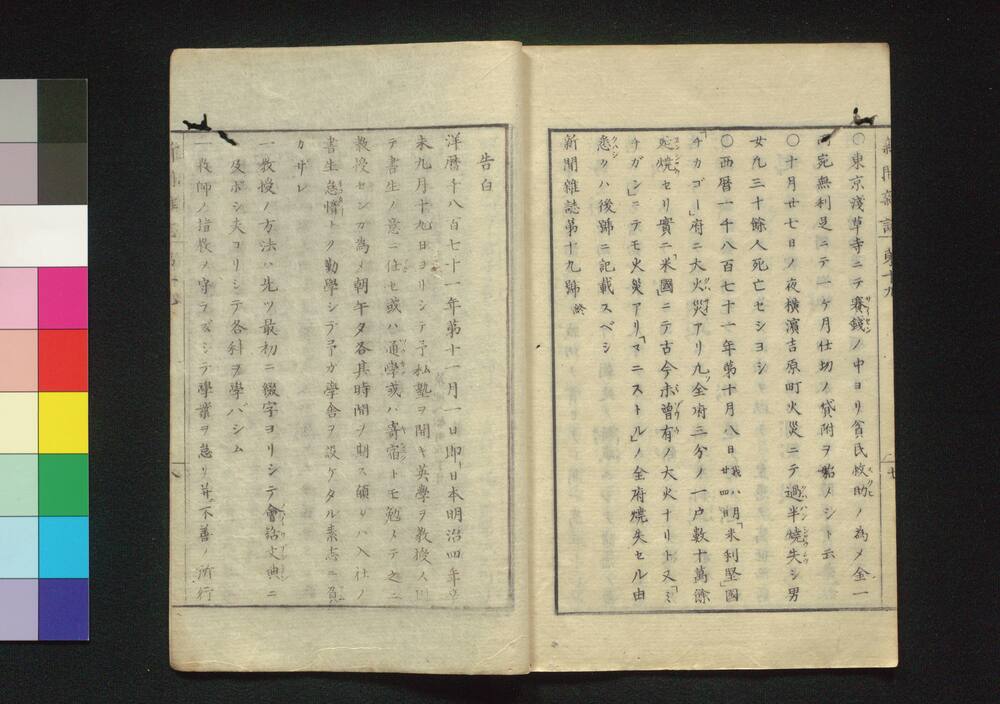 〇東京淺草寺ニテ賽錢ノ中ヨリ貧民救助ノ為メ金一
宛無利足ニテ一ケ月仕切ノ貸附ヲ始メシト云
〇十月廿七日ノ夜横濱吉原町火災ニテ過半焼失シ男
女凡三十餘人死亡セシヨシ
〇西暦一千八百七十一年第十月八日我八月廿四日「米利堅」國
「チカゴー」府ニ大火災アリ凡全府三分ノ一戸數十萬餘
延焼セリ實ニ「米國」ニテ古今未曽有ノ大火ナリト又「ミ
チガン」ニテモ火災アリ「マニストル」ノ全府焼失セル由
悉クハ後號ニ記載スベシ
新聞雑誌第十九號終
告白
洋暦千八百七十一年第十一月一日即日本明治四年辛
未九月十九日ヨリシテ予私塾ヲ開キ英學ヲ教授ス因
テ書生ノ意ニ任セ或ハ通學或ハ寄宿トモ勉メテ之ニ
教授センガ為メ朝午夕各其時間ヲ期ス願クハ入社ノ
書生怠惰ナク勤學シテ予ガ學舎ヲ設ケタル素志ニ負
カザレ
一教授ノ方法ハ先ツ最初ニ綴字ヨリシテ會話文典ニ
及ボシ夫ヨリシテ各科ヲ學バシム
一教師ノ指教ノ守ラズシテ學業ヲ怠リ并不善ノ所行